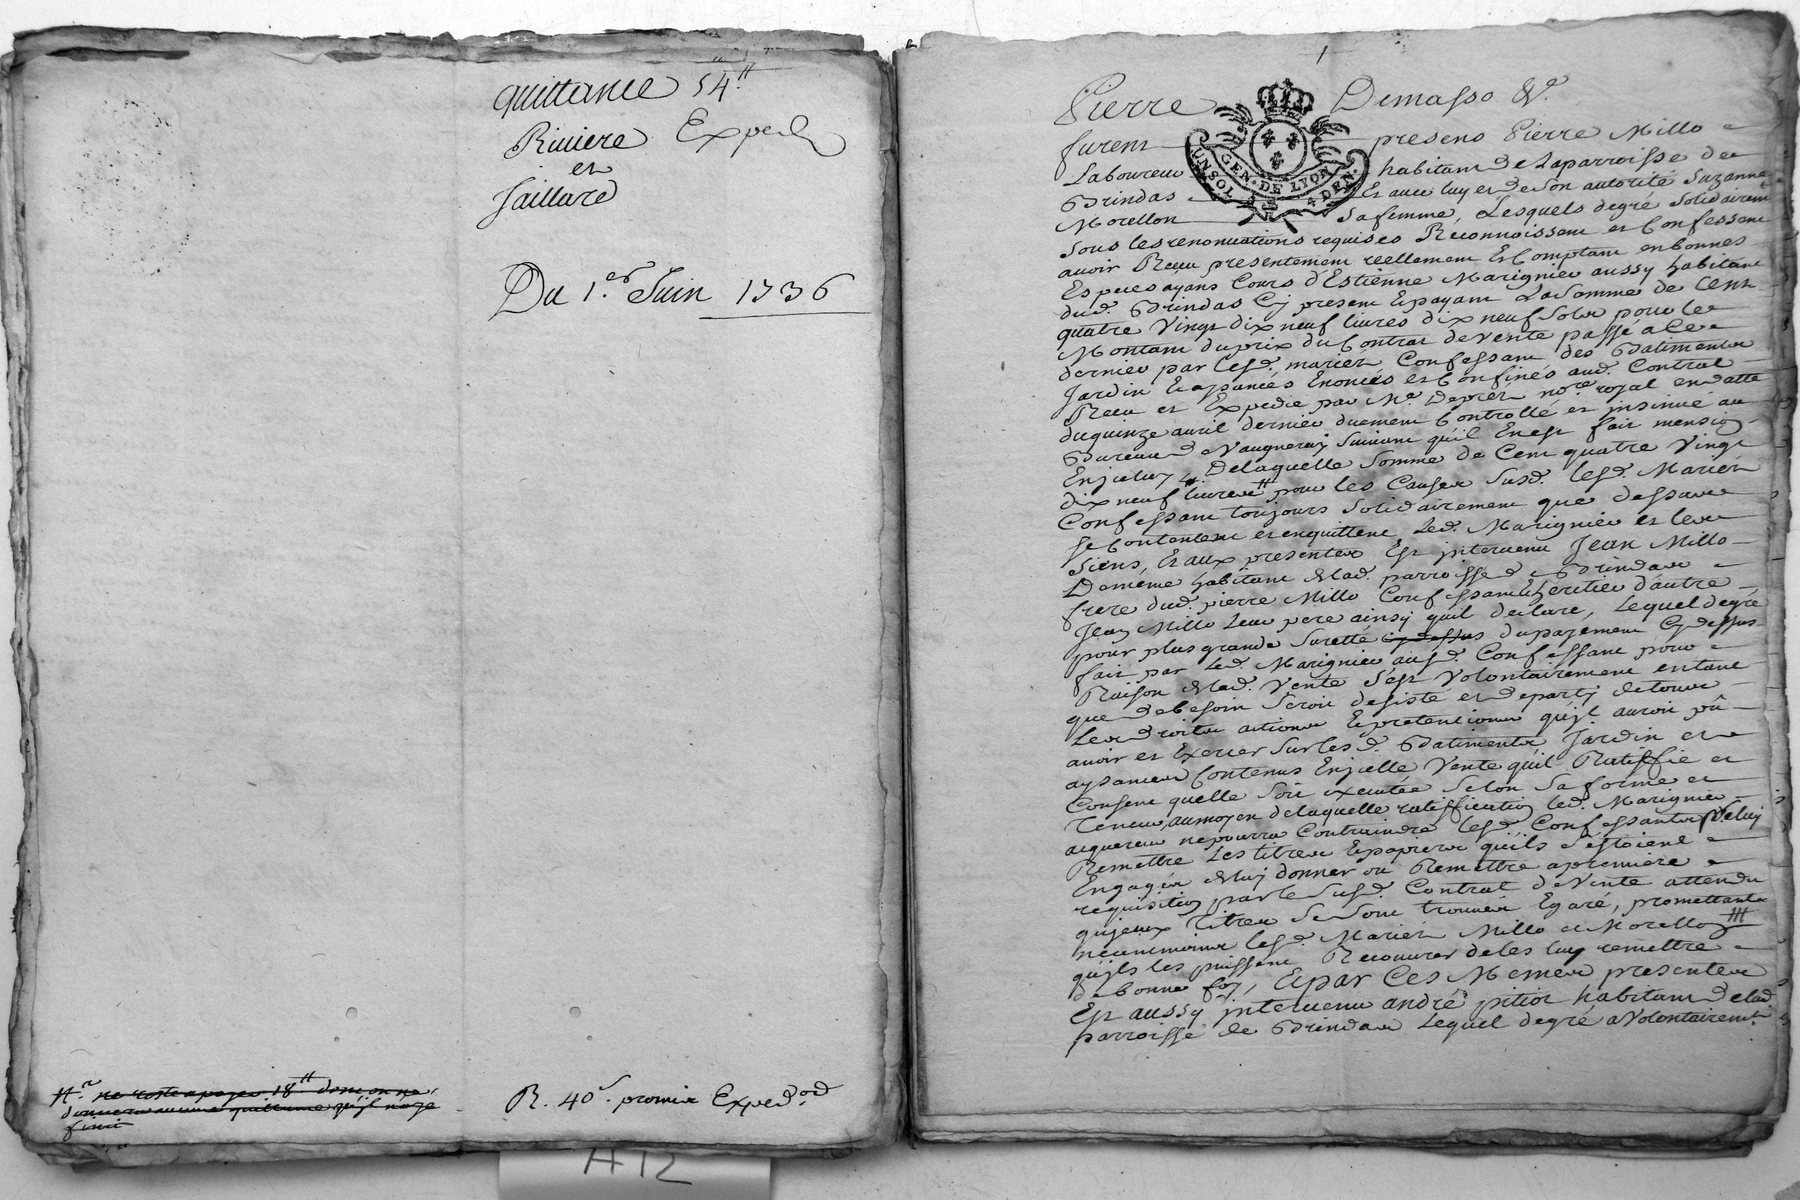 quittance 54.tt
Riviere Exped
et
Jaillard
Du 1.er Juin 1736
ne reste a payer 18tt donc on ne
donnera aucune quittance qu'il n'aye
fini
R. 40s. promis Exped.
A 12
1
Pierre Demasso &.a
furent presens Pierre Millo
Laboureur habitant de La parroisse de
Brindas Et avec luy et de son autorité Suzanne
Morellon sa femme, Lesquels de gré solidairemt
GEN. DE LYON
UN SOL 4 DEN.
sous les renonciations requises Reconnoissent et Confessent
avoir Receu presentement reellement Et Comptant en bonnes
Especes ayans Cours d'Estienne Marignier aussy habitant
dud. Brindas Cy present Et payant La somme de Cent
quatre Vingt dix neuf livres dix neuf sols pour le
Montant du prix du Contrat de vente passé a
dernier par lesd. mariés Confessant des Batimens
Jardin Et aysances Enoncés et Confinés aud. Contrat
Receu et Expedié par Me. not.re royal en datte
du quinze avril dernier duement Controllé et insinué au
Bureau de Vaugneray suivant qu'il En est fait mension
En iceluy, De laquelle somme de Cent quatre Vingt
dix neuf livres tt pour les Causes susd. lesd. Mariés
Confessant toujours solidairement que dessus
se Contentent et en quittent Led. Marignier et les
siens, Et aux presentes Est intervenu Jean Millo
De même habitant de lad. parroisse de Brindas
frere dud. pierre Millo Confessant Et heritier d'autre
Jean Millo Leur pere ainsy qu'il declare, Lequel de gré
pour plus grande suretté cy dessus du payement Cy dessus
fait par Led. Marignier ausd. Confessant pour
Raison de lad. Vente s'est Volontairement en tant
que de besoin seroit desisté et departy de tous
Les droits actions Et pretentions qu'il auroit pû
avoir et Exercer sur lesd. Batimens Jardin et
aysances Contenus En icelle Vente qu'il Ratiffie et
Consent quelle soit executée selon sa forme et
Teneur, au moyen de laquelle ratiffication led. Marignier
acquereur ne pourra Contraindre lesd. Confessants de luy
Remettre Les titres Et papiers qu'ils s'estoient
Engagés de luy donner ou Remettre a premiere
requisition par le susd. Contrat de Vente attendu
qu'iceux Titres se sont trouvés Egaré, promettants
neantmoins lesd. Mariés Millo et Morellon
qu'ils les puissent Recouvrer de les luy remettre
de bonne foy, Et par Ces Memes presentes
Est aussy intervenu andré pitiot habitant de lad.
parroisse de Brindas Lequel de gré a Volontairemt.